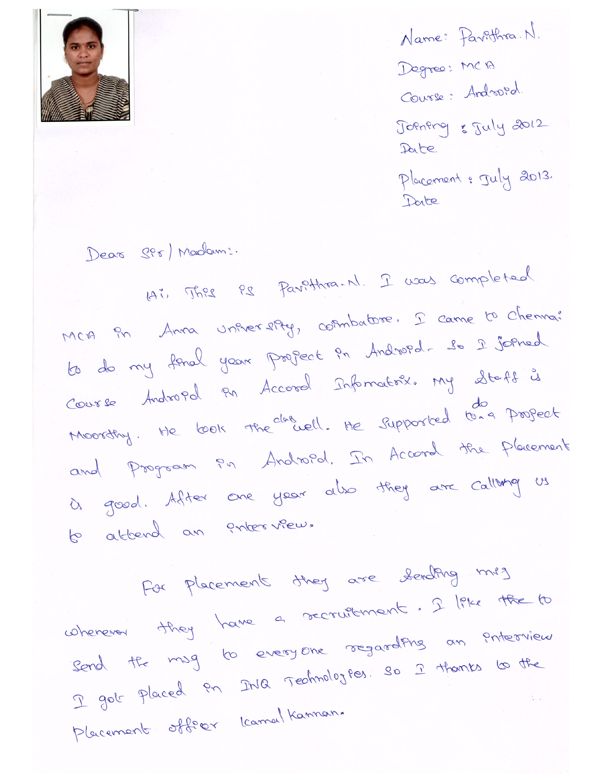 Name: Pavithra.N.
Degree: MCA
Course: Android.
Joining : July 2012
Date
Placement : July 2013.
Date
Dear Sir/Madam:.
Hi, This is Pavithra.N. I was completed
MCA in Anna university, coimbatore. I came to Chennai
to do my final year project in Android. So I joined
Course Android in Accord Infomatrix. My Staff is
Moorthy. He took the class well. He supported to do a Project
and Program in Android. In Accord the Placement
is good. After one year also they are calling us
to attend an interview.
For Placement they are sending msg
whenever they have a recruitment. I like the to
Send the msg to everyone regarding an interview
I got placed in INQ Technologies. So I thanks to the
Placement officer Kamal Kannan.